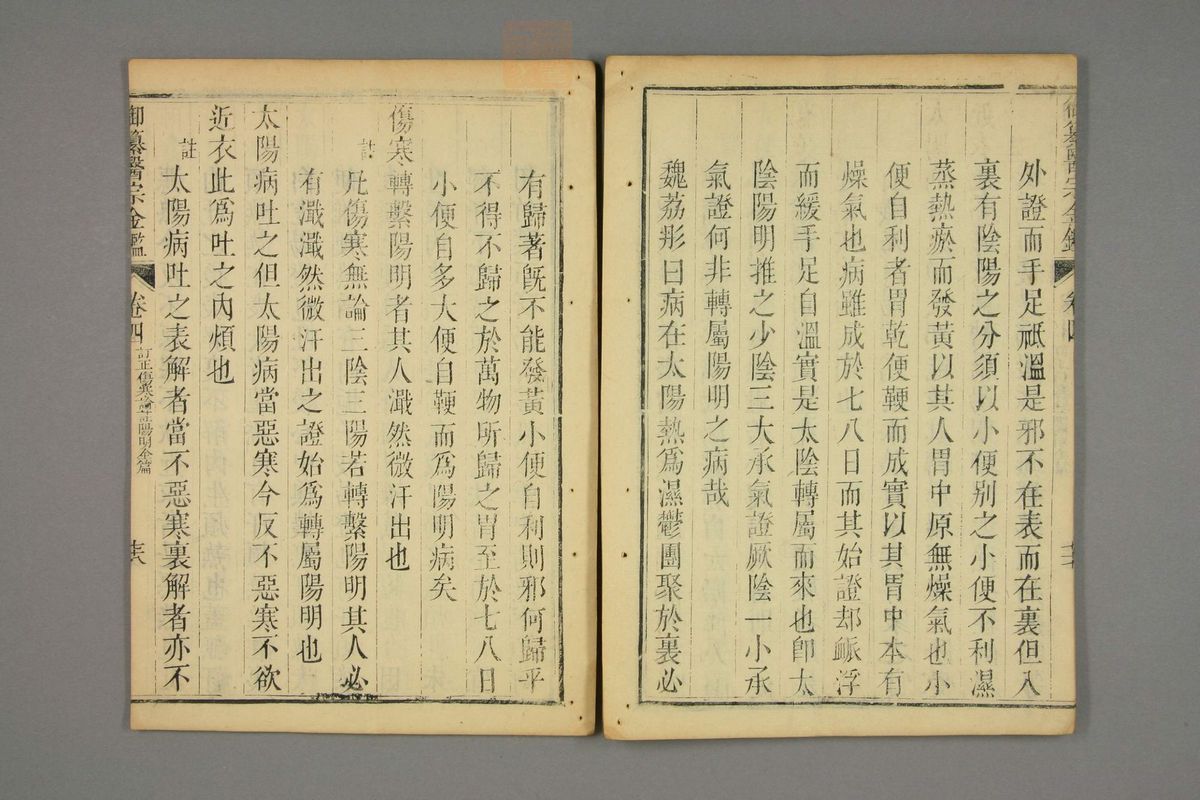 御纂醫宗金鑑 卷四
外證而手足祗溫是邪不在表而在裏但入
裏有陰陽之分須以小便別之小便不利濕
蒸熱瘀而發黃以其人胃中原無燥氣也小
便自利者胃乾便鞕而成實以其胃中本有
燥氣也病雖成於七八日而其始證却脈浮
而緩手足自溫實是太陰轉屬而來也卽太
陰陽明推之少陰三大承氣證厥陰一小承
氣證何非轉屬陽明之病哉
魏荔彤曰病在太陽熱爲濕鬱團聚於裏必
有歸著旣不能發黃小便自利則邪何歸乎
不得不歸之於萬物所歸之胃至於七八日
小便自多大便自鞕而爲陽明病矣
傷寒轉繫陽明者其人濈然微汗出也
註
凡傷寒無論三陰三陽若轉繫陽明其人必
有濈濈然微汗出之證始爲轉屬陽明也
太陽病吐之但太陽病當惡寒今反不惡寒不欲
近衣此爲吐之內煩也
註
太陽病吐之表解者當不惡寒裏解者亦不
御纂醫宗金鑑 卷四 訂正傷寒論註陽明全篇